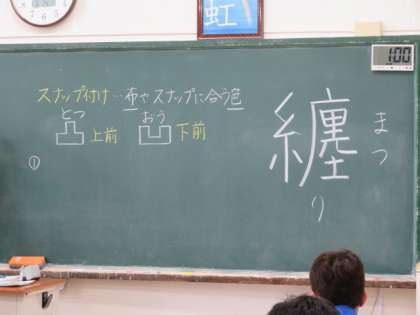 虹
1:00
スナップ付け…布やスナップに合う色
とつ おう
凸 上前 凹 下前
①
纏り
まつ